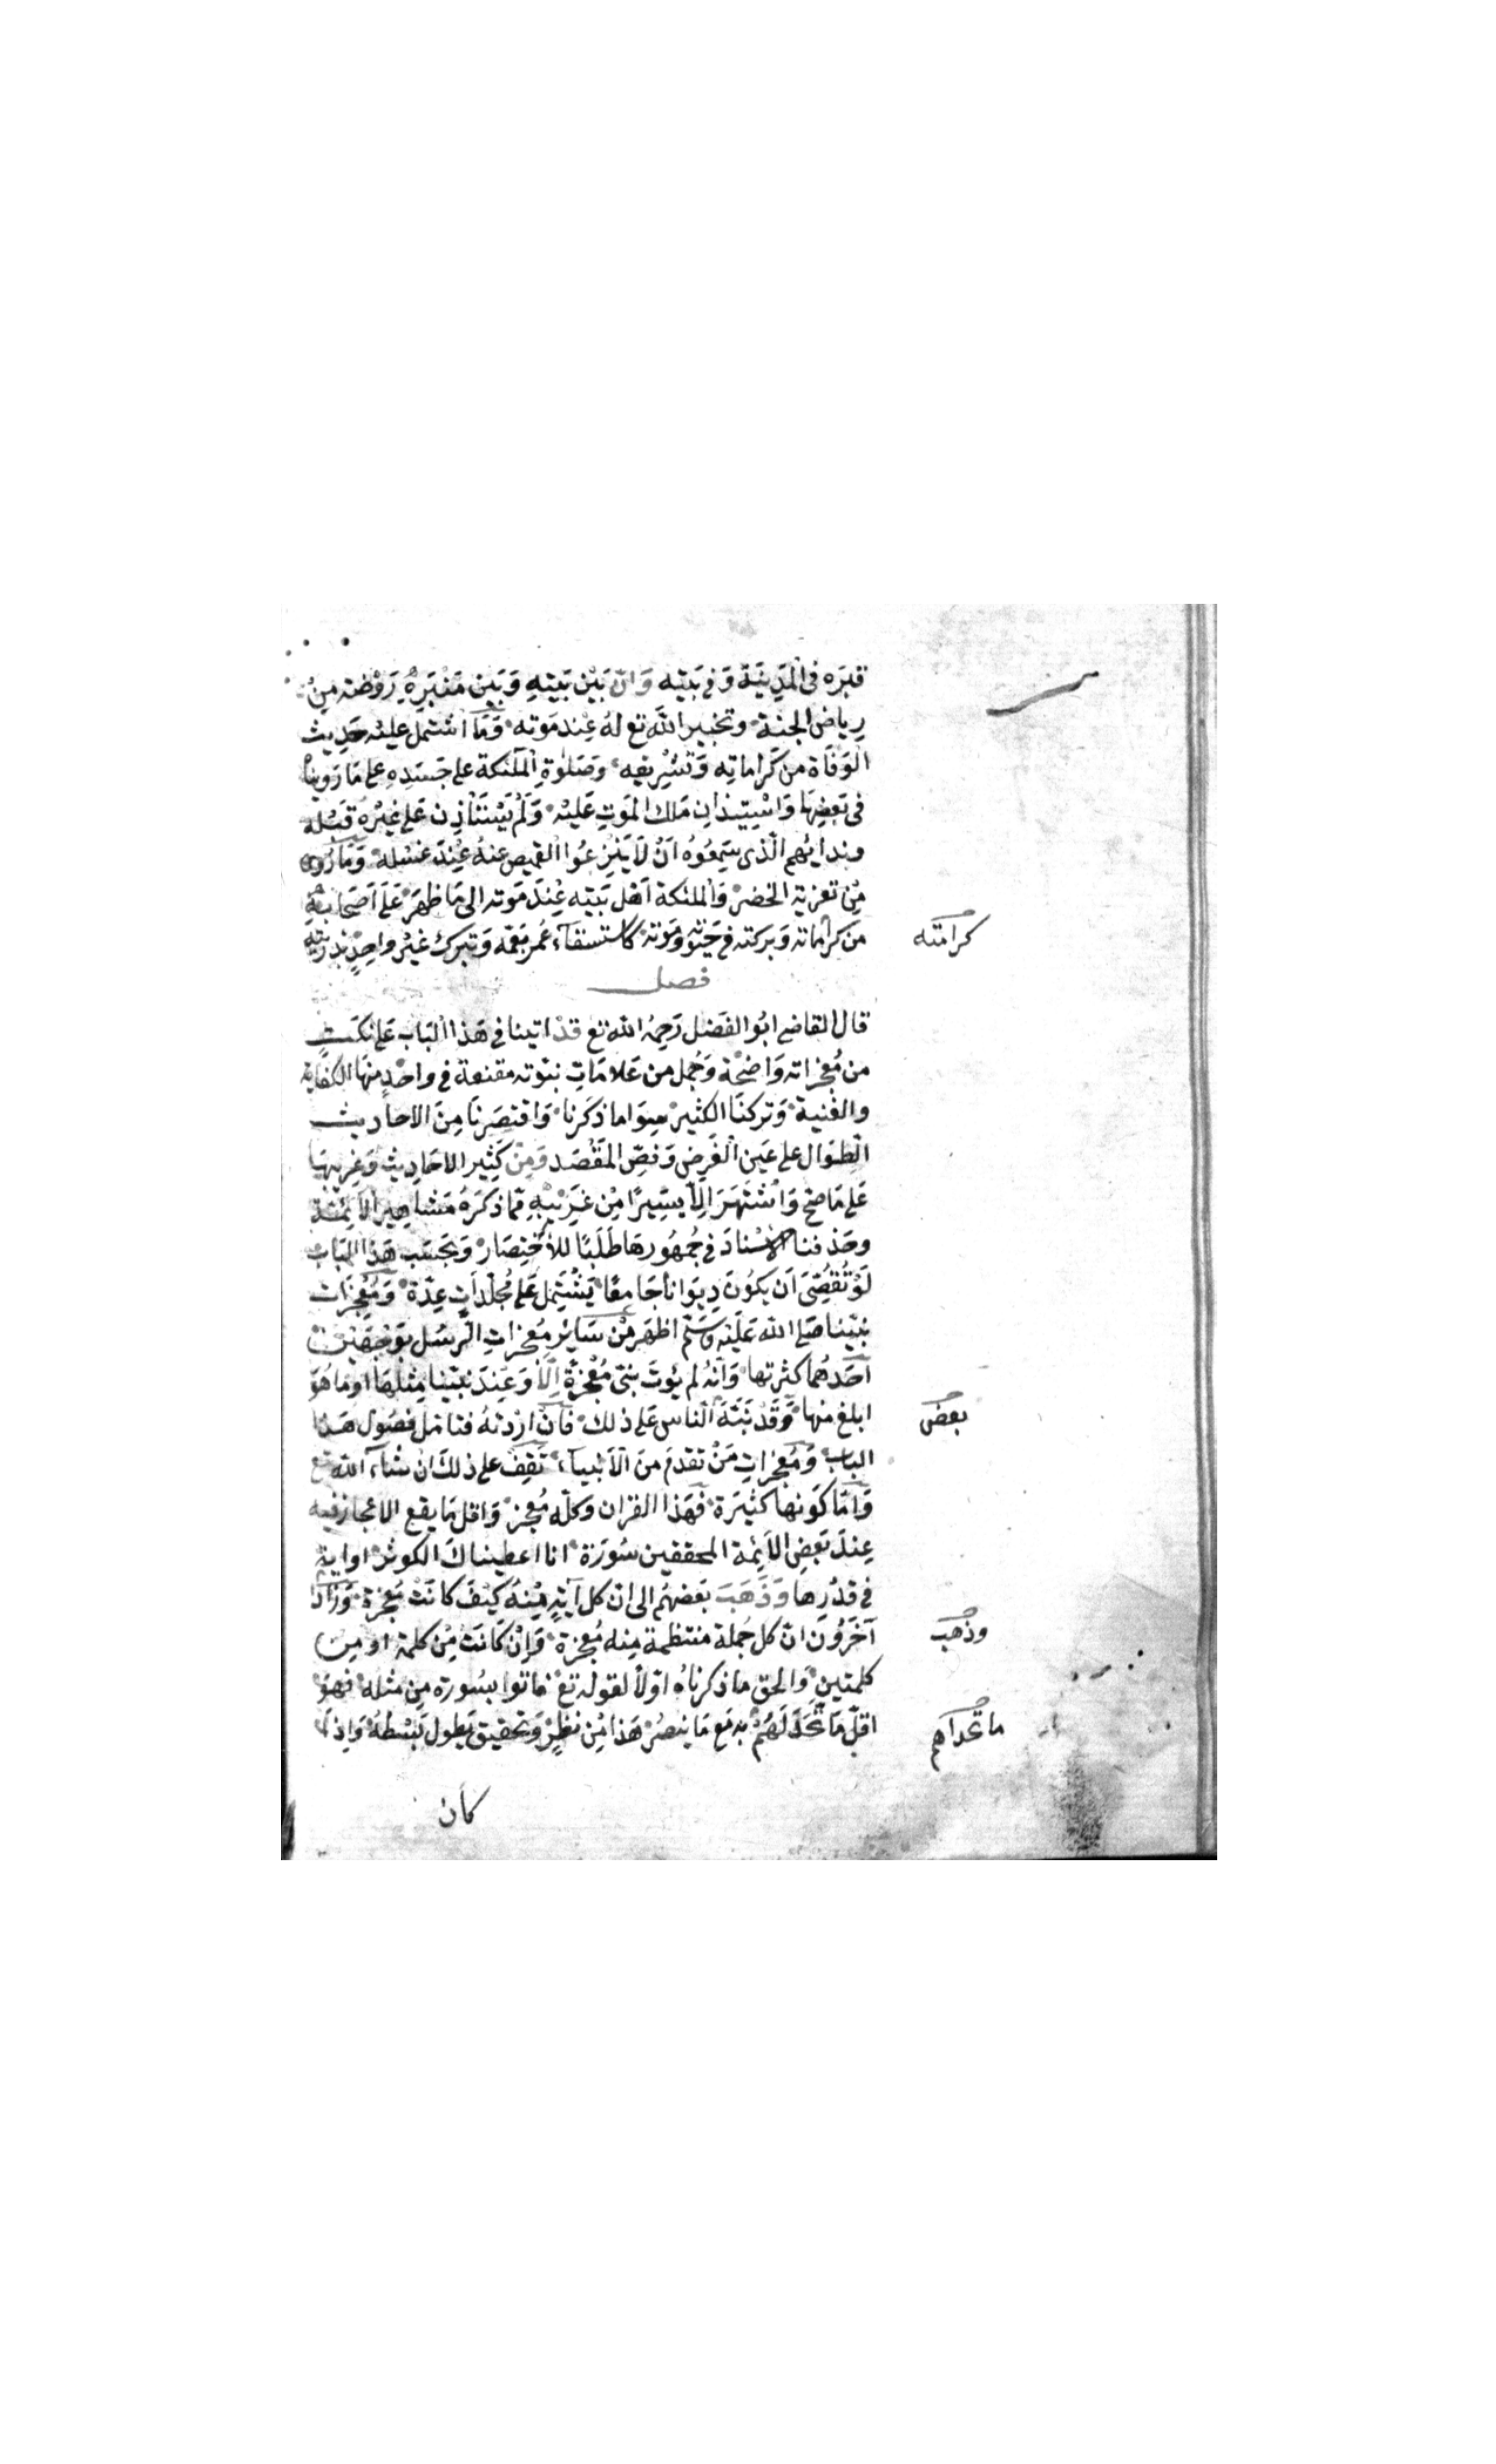 قبره في المدينة وفي بيته وان بين بيته وبين منبره روضة من
رياض الجنة وتخيير الله تع له عند موته وما اشتمل عليه حديث
الوفاة من كراماته وتشريفه وصلوة الملئكة على جسده على ما رويناه
في بعضها واستيذان ملك الموت عليه ولم يستأذن على غيره قبله
وندائهم الذي سمعوه ان لا ينزعوا القميص عنه عند غسله وما روي
من تعزية الخضر والملئكة اهل بيته عند موته الى ما ظهر على اصحابه
من كراماته وبركته في حيوته وموته كاستسقاء عمر بعمه وتبرك غير واحد بذريته
كرامته
فصل
قال القاضي ابو الفضل رحمه الله تع قد اتينا في هذا الباب على نكت
من معجزاته واضحة وجمل من علامات نبوته مقنعة في واحد منها الكفاية
والغنية وتركنا الكثير سوا ما ذكرنا واقتصرنا من الاحاديث
الطوال على عين الغرض وفص المقصد ومن كثير الاحاديث وغريبها
على ما صح واشتهر الا يسيرا من غريبه مما ذكره مشاهير الائمة
وحذفنا الاسناد في جمهورها طلبا للاختصار وبحسب هذا الباب
لو تقصي ان يكون ديوانا جامعا يشتمل على مجلدات عدة ومعجزات
نبينا صلى الله عليه وسلم اظهر من سائر معجزات الرسل بوجهين
احدهما كثرتها وانه لم يؤت نبي معجزة الا وعند نبينا مثلها او ما هو
ابلغ منها وقد نبه الناس على ذلك فان اردته فتامل فصول هذا
بعض
الباب ومعجزات من تقدم من الانبياء تقف على ذلك ان شاء الله تع
واما كونها كثيرة فهذا القران وكله معجز واقل ما يقع الاعجاز فيه
عند بعض الائمة المحققين سورة انا اعطيناك الكوثر او اية
في قدرها وذهب بعضهم الى ان كل آية منه كيف كانت معجزة وزاد
آخرون ان كل جملة منتظمة منه معجزة وان كانت من كلمة او من
وذهب
كلمتين والحق ما ذكرناه اولا لقوله تع فاتوا بسورة من مثله فهو
اقل ما تحداهم به مع ما ينصر هذا من نظر وتحقيق يطول بسطه واذا
ما تحداهم
كان